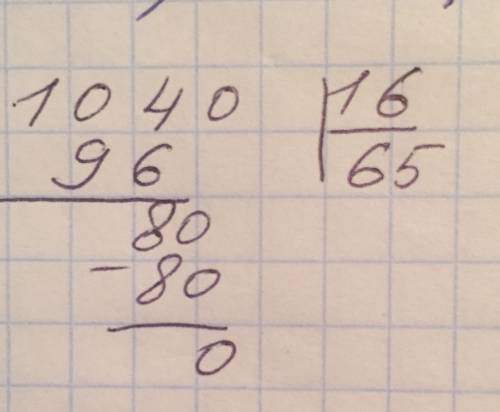 1040 16
96 65
80
-80
0